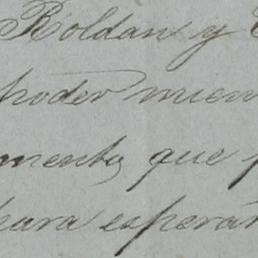 Roldan y
poder mien
mento, que
para esperar